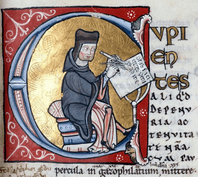 CUPI
EN
TES
ALIQ D
DEPENU
RIA AC
TENUITA
TE NRA
CUM PAU
percula in gazophilatium mittere.